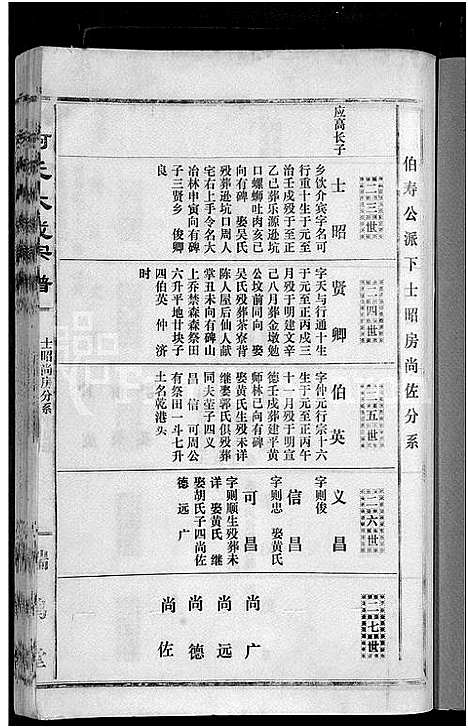 伯寿公派下士昭房尚佐分系
二三世
应高长子
士昭
乡饮介宾字名可
行重十生于元至
治壬戌殁于至正
乙已葬乐源逊坑
口螺蛳吐肉亥已
向有碑 娶吴氏
殁葬逊坑口周人
宅右上手令名大
冶林申寅向有碑
子三贤乡 俊卿
良
二四世
贤卿
字天与行通十生
于元至正丙戌三
月殁于明建文辛
己八月葬金墩勉
公坟前同向 娶
吴氏殁葬茶寮背
陈人屋后仙人献
掌丑未向有碑山
上乔禁森森祭田
六升平地廿块子
四伯英 仲 济
时
二五世
伯英
字仲元行宗十六
生于元至正丙午
十一月殁于明宣
德壬戌葬建平黄
师林已向有碑
娶黄氏生殁未详
继娶郭氏俱殁葬
同夫茔子四义
昌 信 可周公
有祭田一斗七升
土名乾港头
二六世
义昌
字则俊
信昌
字则忠 娶黄氏
可昌
字则顺生殁葬未
详 娶黄氏 继
娶胡氏子四尚佐
德 远 广
二七世
尚广
尚远
尚德
尚佐
大成宗谱
士昭尚房分系